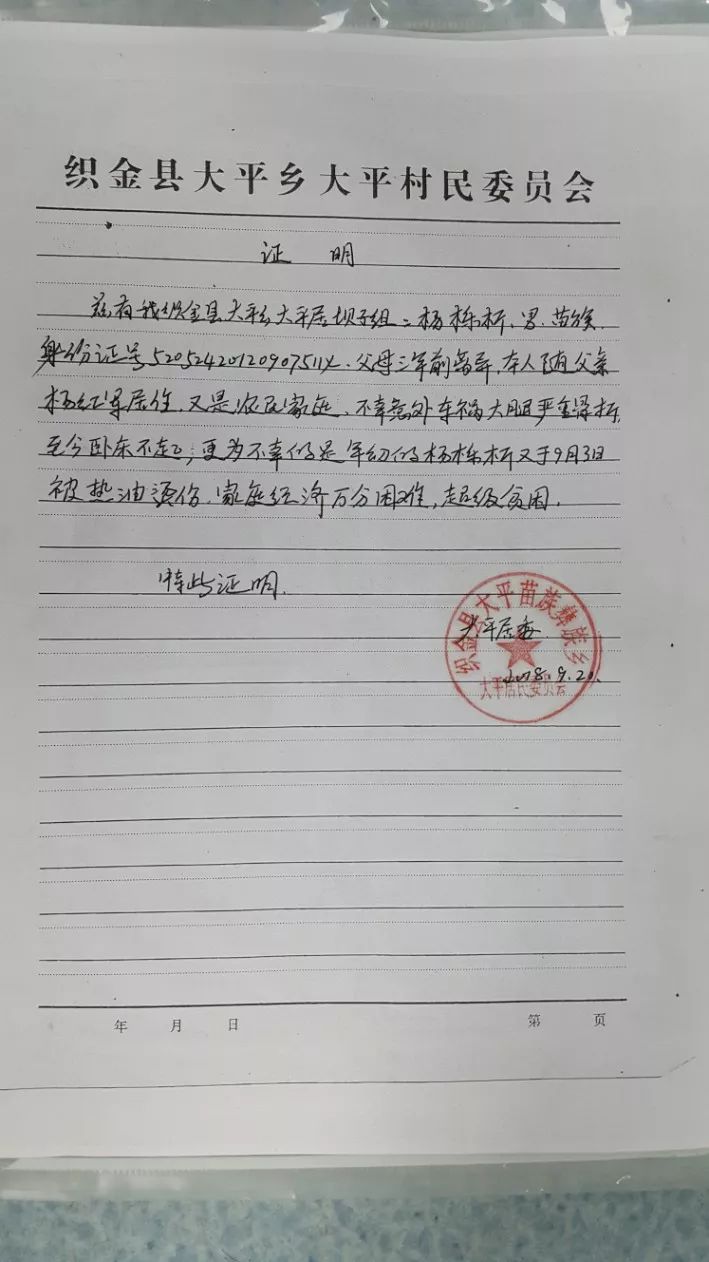 织金县大平乡大平村民委员会
证 明
兹有我织金县大平乡大平居坝子组：杨栋桥、男、苗族、
身份证号52052420120907511X. 父母三年前离异,本人随父亲
杨红军居住,又是农民家庭、不幸意外车祸大腿严重
至今卧床不起；更为不幸的是年幼的杨栋桥又于9月3日
被热油烫伤.家庭经济万分困难,超级贫困.
特此证明.
织金县大平苗族彝族乡
大平居委
2018.9.20.
大平居民委员会
年 月 日 第 页